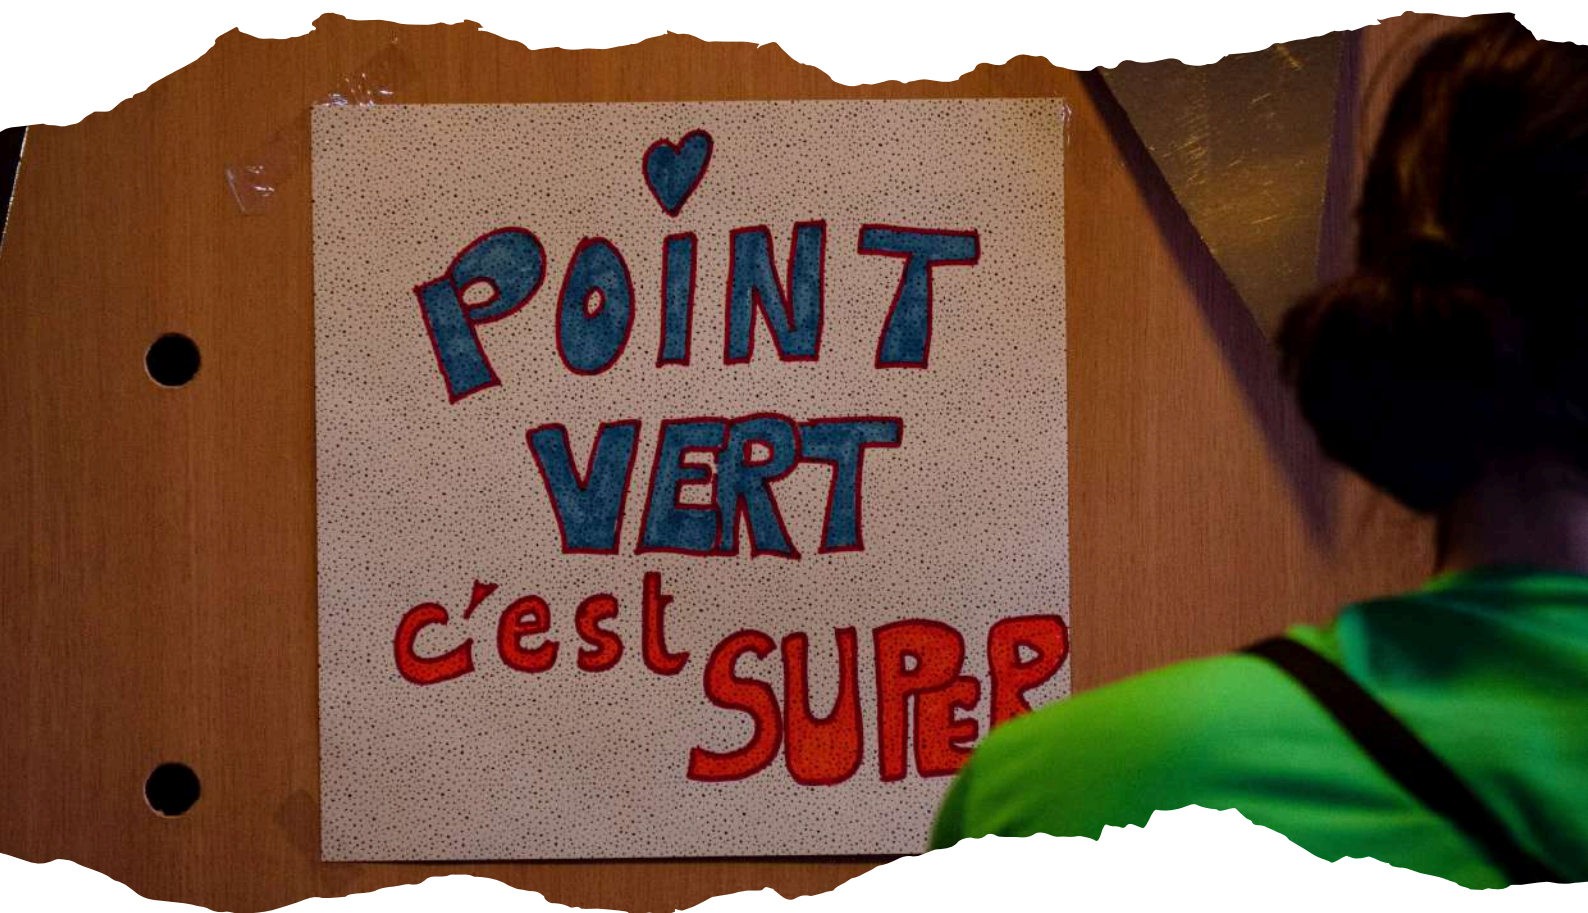 POINT
VERT
c'est
SUPER